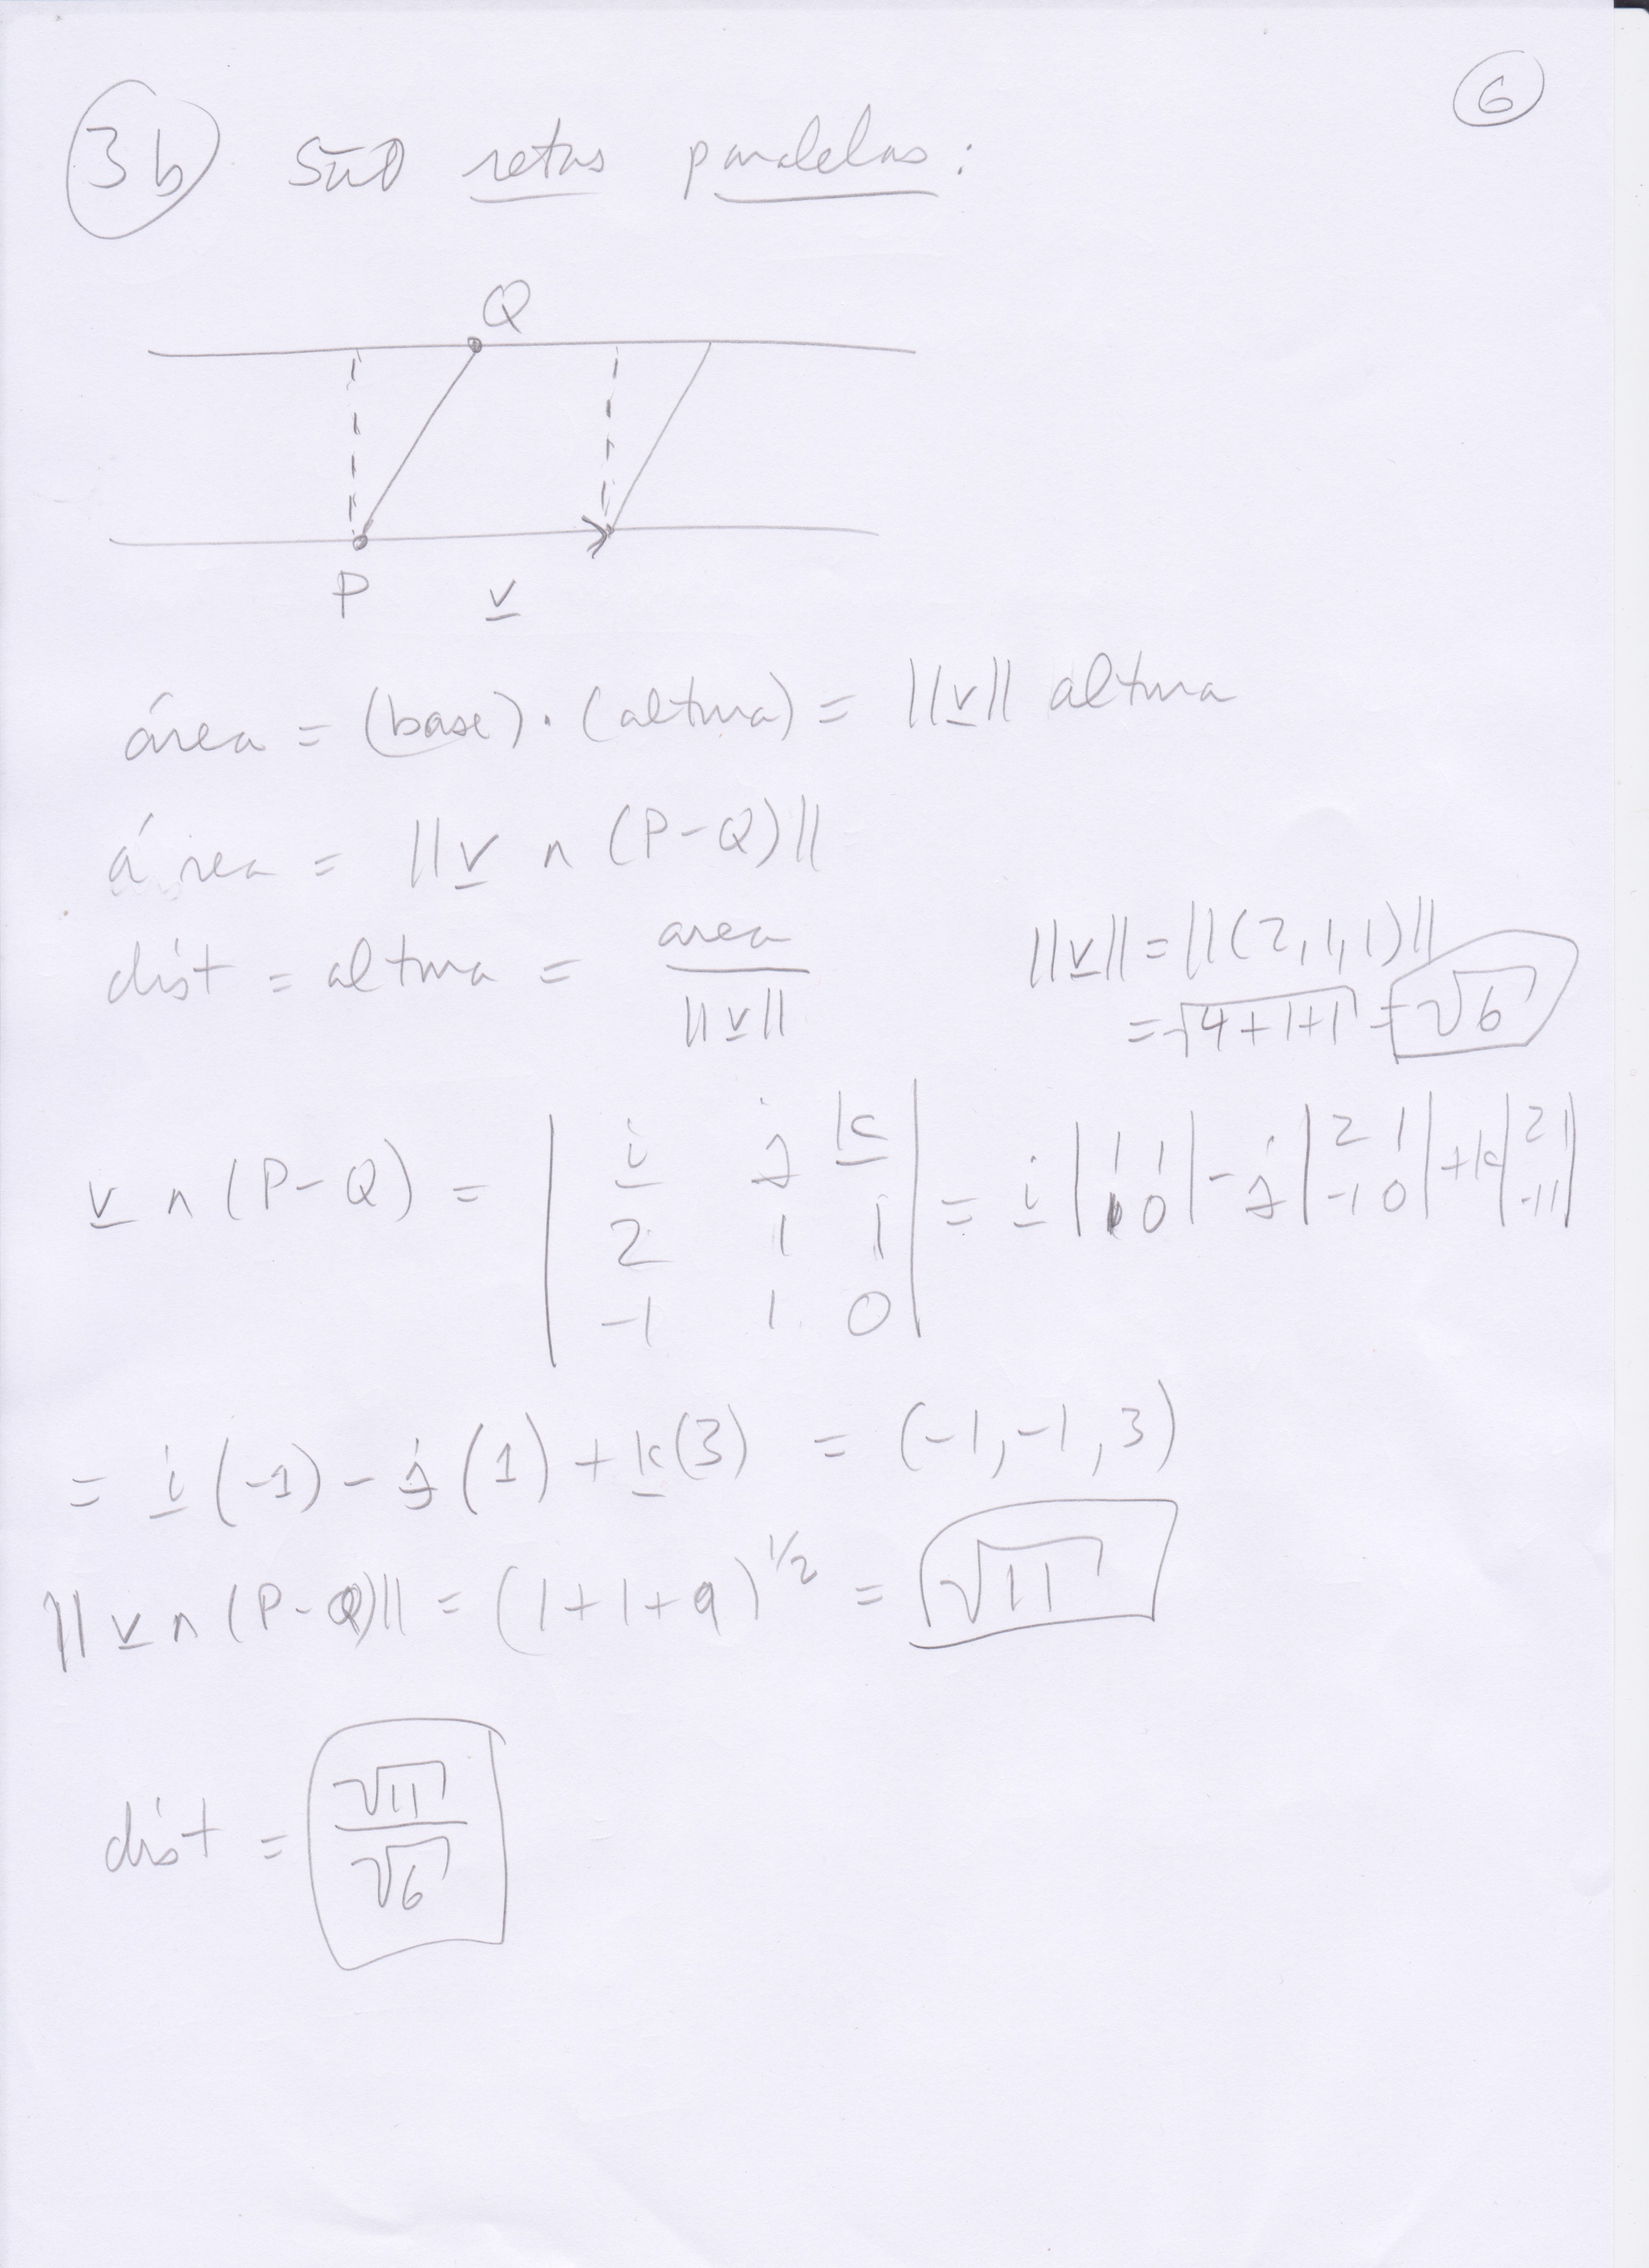 6
3b São retas paralelas:
Q
P v
área = (base) . (altura) = ||v|| altura
área = ||v ∧ (P-Q)||
dist = altura = area / ||v||
||v|| = ||(2,1,1)||
= √4+1+1 = √6
v ∧ (P-Q) = | i j k | = i |1 1| - j |2 1| + k |2 1|
| 2 1 1 | |1 0| |-1 0| |-1 1|
| -1 1 0 |
= i (-1) - j (1) + k (3) = (-1,-1,3)
||v ∧ (P-Q)|| = (1+1+9)^1/2 = √11
dist = √11 / √6